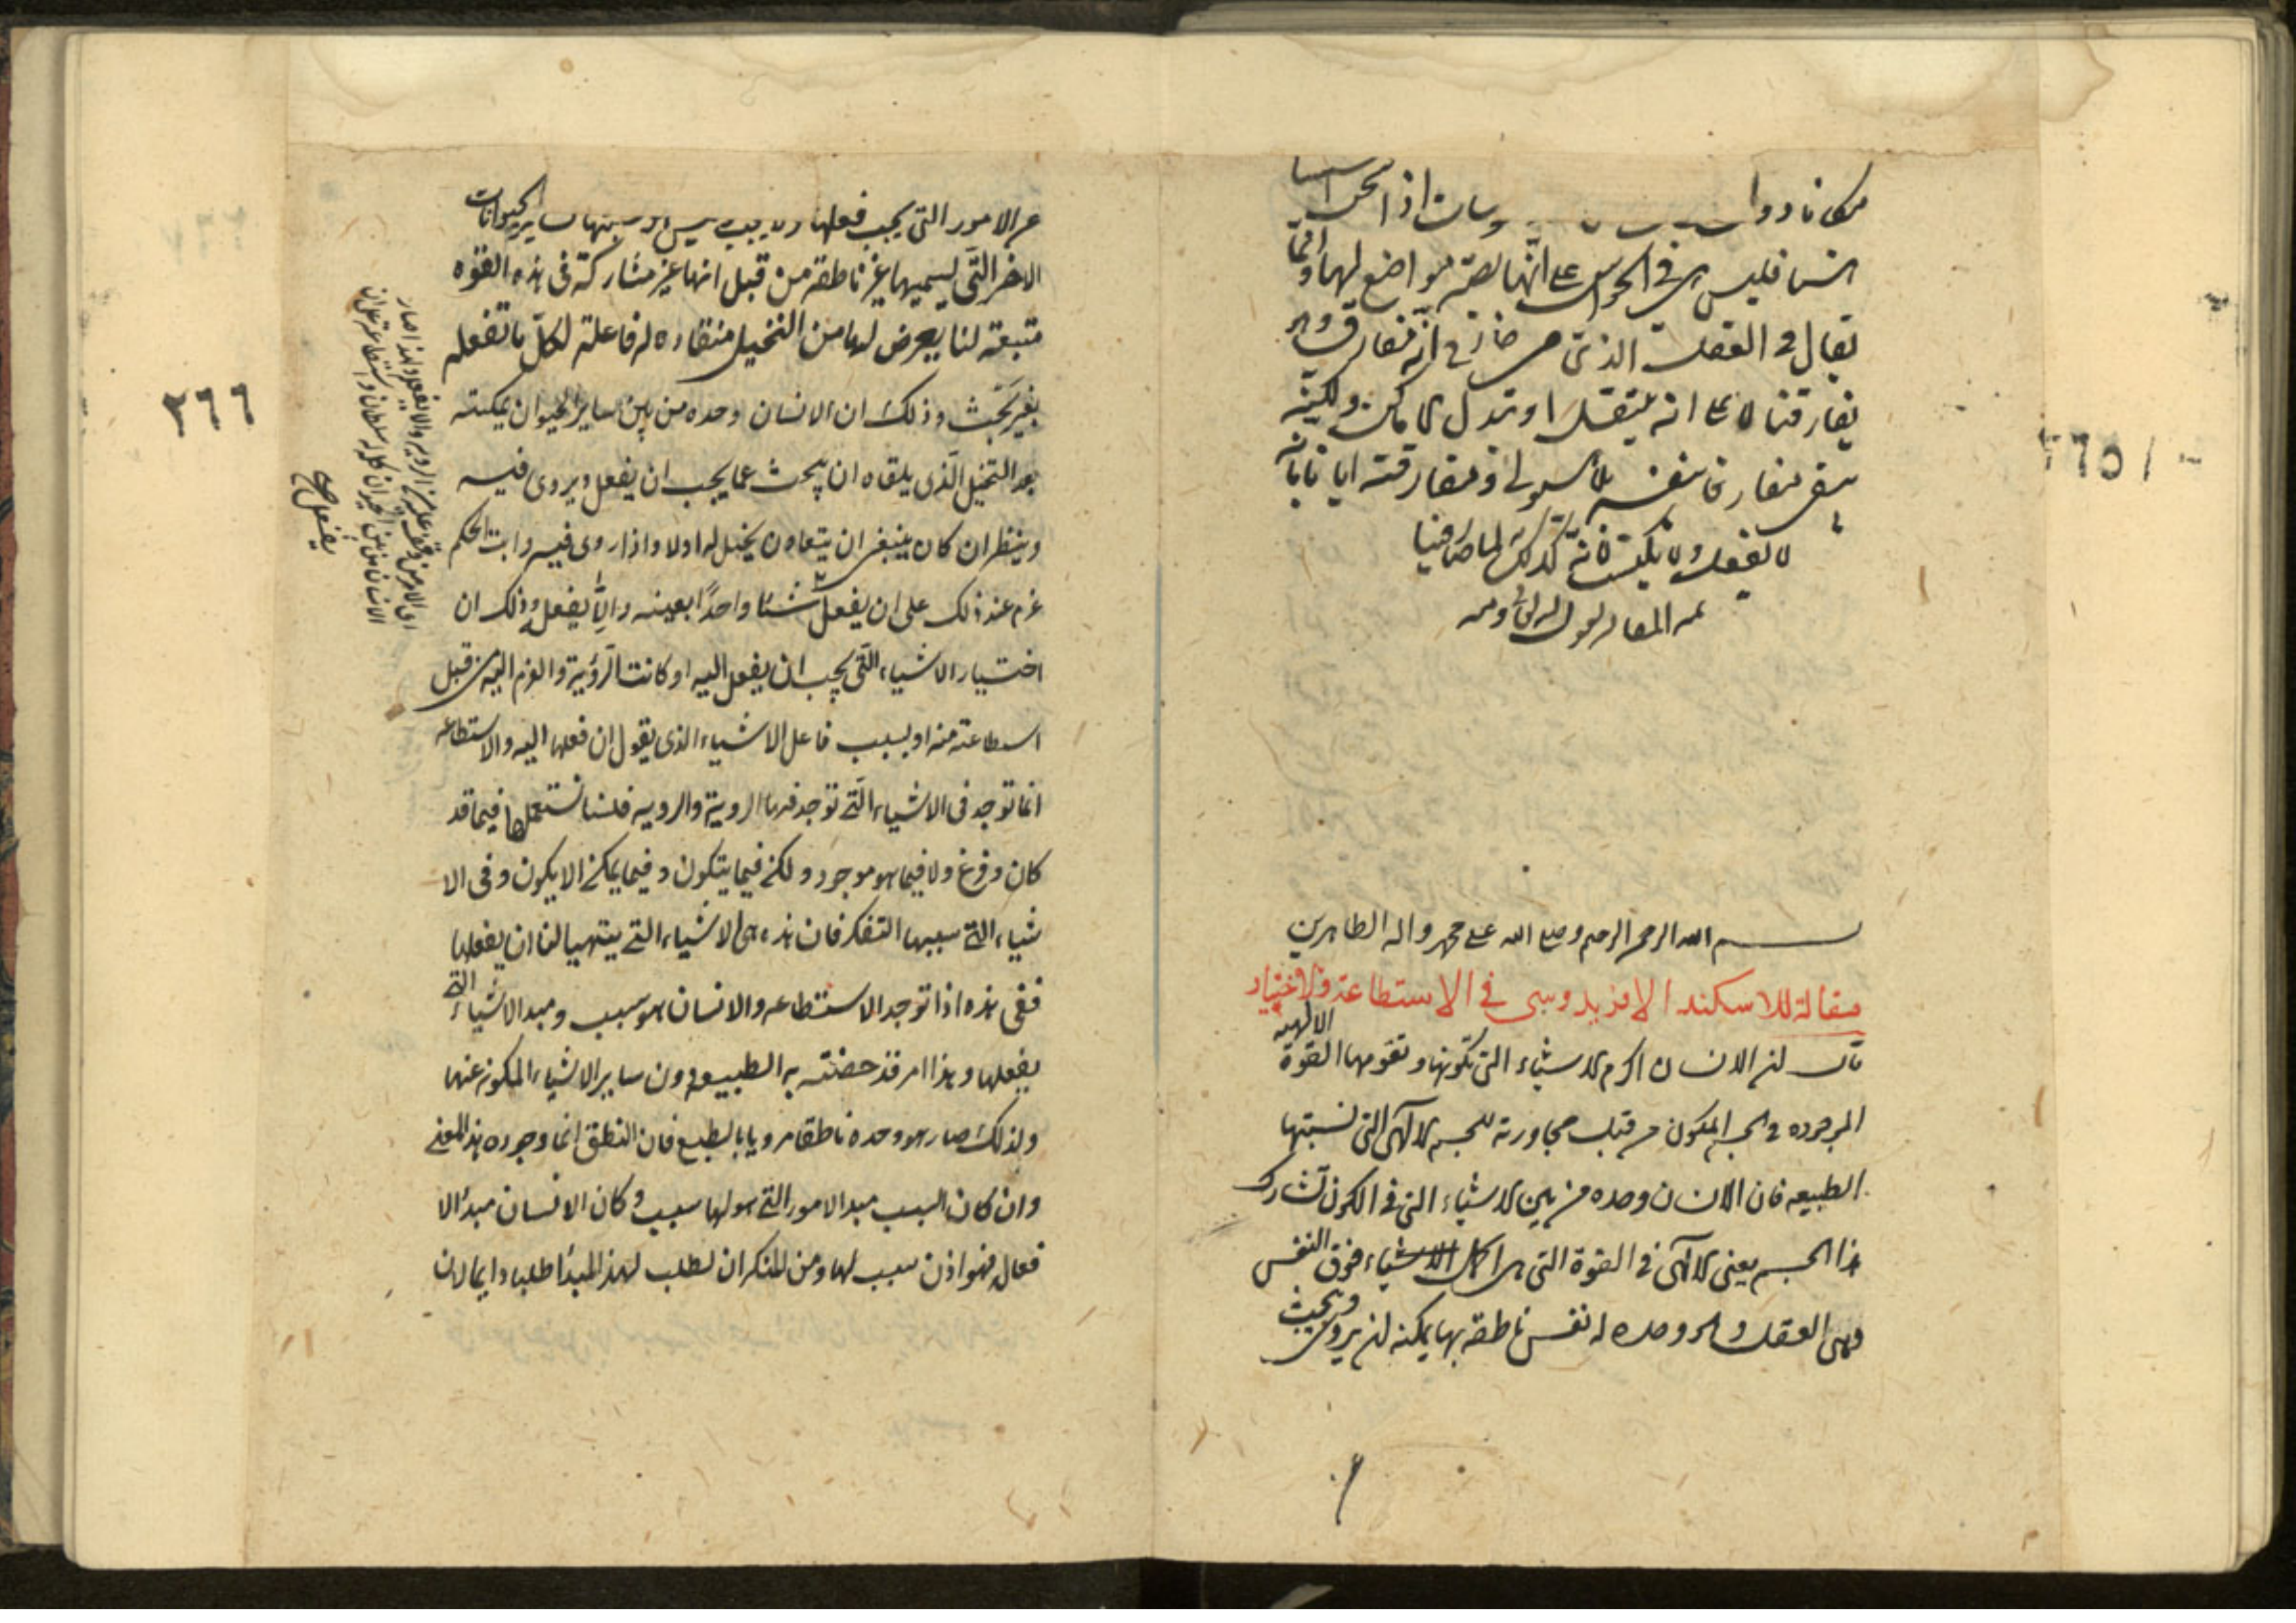 مكانا دوا وسان اذا نحن
انسا فليس هى فى الحواس على انها بصيرة مواضع لها وانما
يقال فى العقل الذى من خارج انه مفارق وهو
يفارقنا لا على انه ينتقل او يبدل الاماكن ولكنه
يبقى مفارقا بنفسه بلا هيولى ومفارقته ايانا بانه
لا يعقل ولا يكتسب لانه كذلك لما صار فينا
تمت المقالة
بسم الله الرحمن الرحيم وصلى الله على محمد واله الطاهرين
مقالة للاسكند الافريدوسى فى الاستطاعة والاختيار
قال ان الانسان اكرم الاشياء التى تكونها وتقومها القوة الالهية
الموجوده فى الجسم المكون من قبل مجاورته للجسم الالهى التى نسبتها
الطبيعه فان الانسان وحده من بين الاشياء التى فى الكون تشارك
هذا الجسم يعنى الالهى فى القوة التى هى اكمل الاشياء فوق النفس
وهى العقل وهو وحده له نفس ناطقة بها يمكنه ان يروى ويبحث
٢٦٥
عن الامور التى يجب فعلها ولا يجب ساير الحيوانات
الاخر التى يسميها غير ناطقة من قبل انها غير مشاركة فى هذه القوه
متبعة لنا يعرض لها من التخيل منقاده له فاعلة لكل ما تفعله
بغير بحث وذلك ان الانسان وحده من بين ساير الحيوان يمكنه
بعد التخيل الذى يلقاه ان يبحث عما يجب ان يفعل ويروى فيه
وينظر ان كان ينبغى ان يتعاون يخيل له اولا واذا روى فيه واثبت الحكم
عزم عند ذلك على ان يفعل شيئا واحدًا بعينه والا يفعل وذلك ان
اختيار الاشياء التى يجب ان يفعل اليه او كانت الروية والعزم اليه من قبل
استطاعته منه او بسبب فاعل الاشياء الذى يقول ان فعلها اليه والاستطاعه
انما توجد فى الاشياء التى توجد فيها الروية والرويه فلسنا نستعملها فيما قد
كان وفرغ ولا فيما هو موجود ولكن فيما يتكون وفيما يمكن الا يكون وفى الا
شياء التى سببها التفكر فان هذه هى الاشياء التى يتهيا لنا ان يفعلها
ففى هذه اذا توجد الاستطاعه والانسان هو سبب ومبدا الاشياء التى
يفعلها وهذا امر قد خصته به الطبيعه دون ساير الاشياء المكونه عنها
ولذلك صار هو وحده ناطقا مرويا بالطبع فان النطق انما وجوده هذا المعنى
وان كان السبب مبدا الامور التى هو لها سبب وكان الانسان مبدا الا
فعاله فهو اذن سبب لها ومن المنكر ان نطلب لهذا المبدا طلبا وايما لان
اى الامرين وقف عليه من الرويه والا يفعل ولهذا صار
الانسان من بين الحيوان كله له سلطان واستطاعة على ان
يفعل صح
٢٦٦